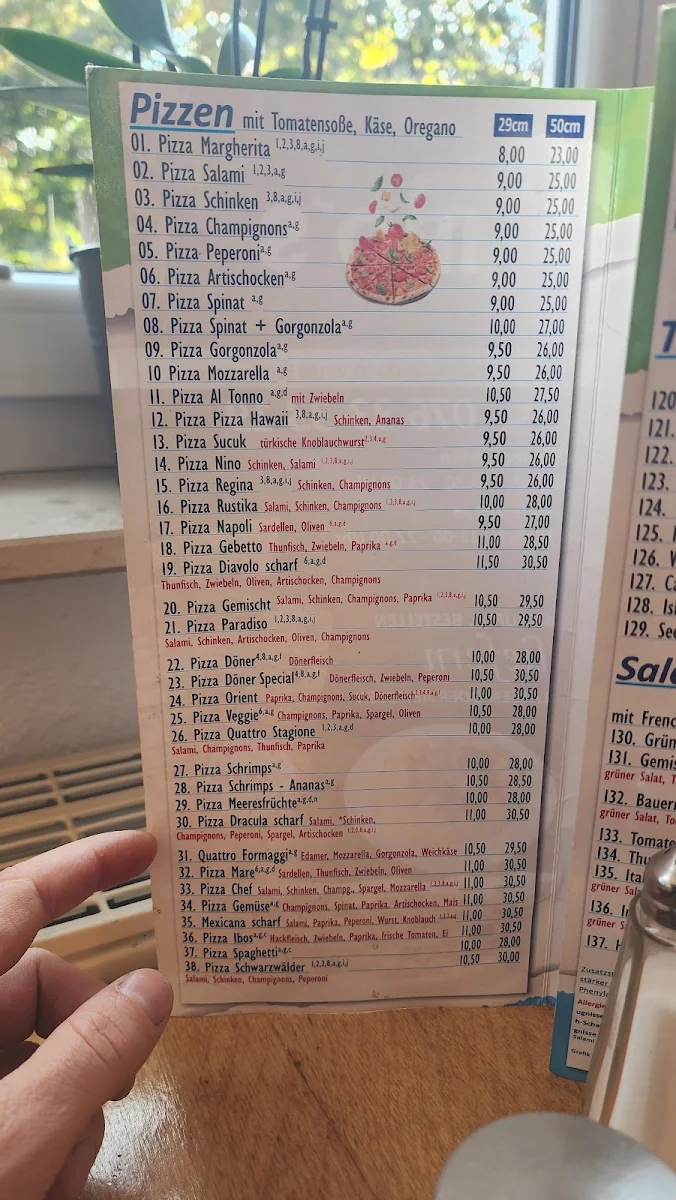 Pizzen mit Tomatensoße, Käse, Oregano 29cm 50cm
01. Pizza Margherita 1,2,3,8,a,g,i,j 8,00 23,00
02. Pizza Salami 1,2,3,a,g 9,00 25,00
03. Pizza Schinken 3,8,a,g,i,j 9,00 25,00
04. Pizza Champignons a,g 9,00 25,00
05. Pizza Peperoni a,g 9,00 25,00
06. Pizza Artischocken a,g 9,00 25,00
07. Pizza Spinat a,g 9,00 25,00
08. Pizza Spinat + Gorgonzola a,g 10,00 27,00
09. Pizza Gorgonzola a,g 9,50 26,00
10 Pizza Mozzarella a,g 9,50 26,00
11. Pizza Al Tonno a,g,d mit Zwiebeln 10,50 27,50
12. Pizza Pizza Hawaii 3,8,a,g,i,j Schinken, Ananas 9,50 26,00
13. Pizza Sucuk türkische Knoblauchwurst 2,3,4,a,g 9,50 26,00
14. Pizza Nino Schinken, Salami 1,2,3,8,a,g,i,j 9,50 26,00
15. Pizza Regina 3,8,a,g,i,j Schinken, Champignons 9,50 26,00
16. Pizza Rustika Salami, Schinken, Champignons 1,2,3,8,a,g,i,j 10,00 28,00
17. Pizza Napoli Sardellen, Oliven 6,a,g,d 9,50 27,00
18. Pizza Gebetto Thunfisch, Zwiebeln, Paprika a,g,d 11,00 28,50
19. Pizza Diavolo scharf 6,a,g,d 11,50 30,50
Thunfisch, Zwiebeln, Oliven, Artischocken, Champignons
20. Pizza Gemischt Salami, Schinken, Champignons, Paprika 1,2,3,8,a,g,i,j 10,50 29,50
21. Pizza Paradiso 1,2,3,8,a,g,i,j 10,50 29,50
Salami, Schinken, Artischocken, Oliven, Champignons
22. Pizza Döner 4,8,a,g,f Dönerfleisch 10,00 28,00
23. Pizza Döner Special 4,8,a,g,f Dönerfleisch, Zwiebeln, Peperoni 10,50 30,50
24. Pizza Orient Paprika, Champignons, Sucuk, Dönerfleisch 11,00 30,50
25. Pizza Veggie 6,a,g Champignons, Paprika, Spargel, Oliven 10,50 28,00
26. Pizza Quattro Stagione 1,2,3,a,g,d 10,00 28,00
Salami, Champignons, Thunfisch, Paprika
27. Pizza Schrimps a,g 10,00 28,00
28. Pizza Schrimps - Ananas a,g 10,50 28,50
29. Pizza Meeresfrüchte a,g,d,n 10,00 28,00
30. Pizza Dracula scharf Salami, *Schinken, 11,00 30,50
Champignons, Peperoni, Spargel, Artischocken 1,2,3,8,a,g,i,j
31. Quattro Formaggi a,g Edamer, Mozzarella, Gorgonzola, Weichkäse 10,50 29,50
32. Pizza Mare 6,a,g,d Sardellen, Thunfisch, Zwiebeln, Oliven 11,00 30,50
33. Pizza Chef Salami, Schinken, Champg., Spargel, Mozzarella 11,00 30,50
34. Pizza Gemüse a,g Champignons, Spinat, Paprika, Artischocken, Mais 11,00 30,50
35. Mexicana scharf Salami, Paprika, Peperoni, Wurst, Knoblauch 11,00 30,50
36. Pizza Ibos a,g,c Hackfleisch, Zwiebeln, Paprika, frische Tomaten, Ei 11,00 30,50
37. Pizza Spaghetti a,g,c 10,00 28,00
38. Pizza Schwarzwälder 1,2,3,8,a,g,i,j 10,50 30,00
Salami, Schinken, Champignons, Peperoni
120
121.
122.
123.
124.
125.
126.
127.
128.
129.
mit
130.
131.
grüner Salat,
132.
grüner Salat,
133.
134.
135.
grüner
136.
grüner
137.